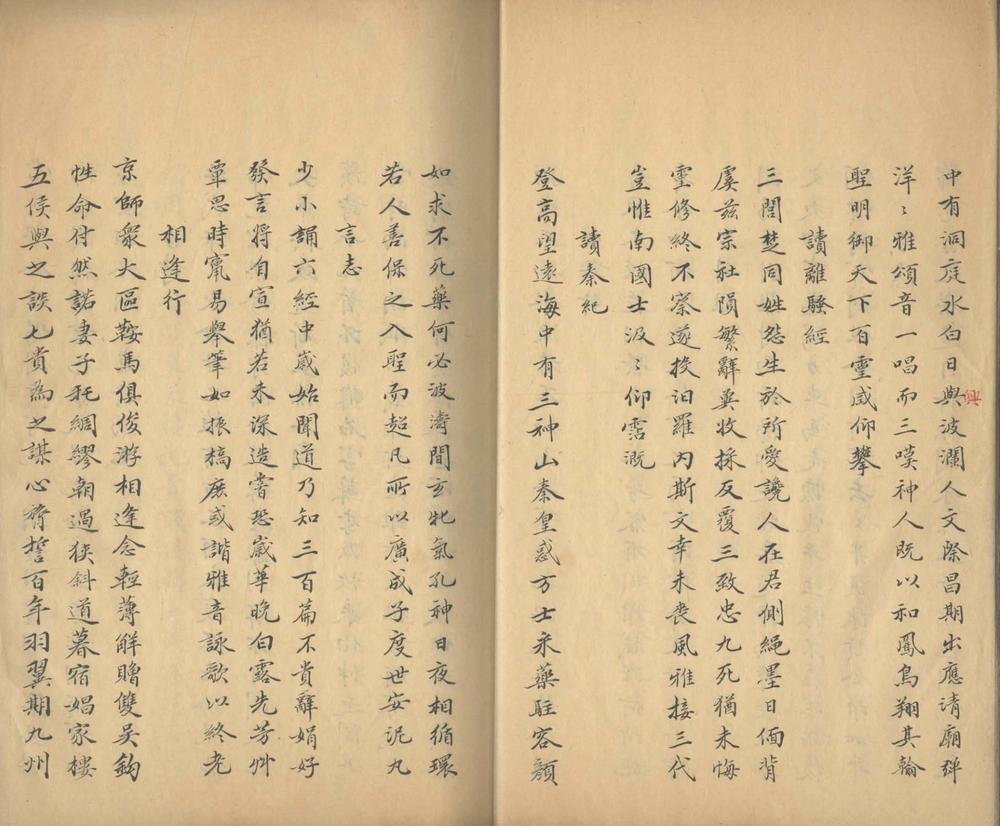 中有洞庭水白日興波瀾人文際昌期出應清廟彈
興
洋〻雅頌音一唱而三嘆神人既以和鳳鳥翔其輪
聖明御天下百靈咸仰攀
讀離騷經
三閭楚同姓怨生於所愛讒人在君側繩墨日偭背
虞茲宗社隕繁辭兾收採反覆三致忠九死猶未悔
靈修終不察遂投汨羅內斯文幸未喪風雅接三代
豈惟南國士汲〻仰霑溉
讀秦紀
登高望遠海中有三神山秦皇惑方士采藥駐容顏
如求不死藥何必波濤間玄牝氣孔神日夜相循環
若人善保之入聖而超凡所以廣成子度世安泥丸
言志
少小誦六經中歲始聞道乃知三百篇不貴辭娟好
發言將自宣猶若未深造嘗恐歲華晚白露先芳艸
覃思時窹易舉筆如振槁庶或諧雅音詠歌以終老
相逢行
京師衆大區鞍馬俱俊游相逢念輕薄解贈雙吳鈎
性命付然諾妻子託綢繆朝過狹斜道暮宿娼家樓
五侯與之談七貴為之謀心膂誓百年羽翼期九州